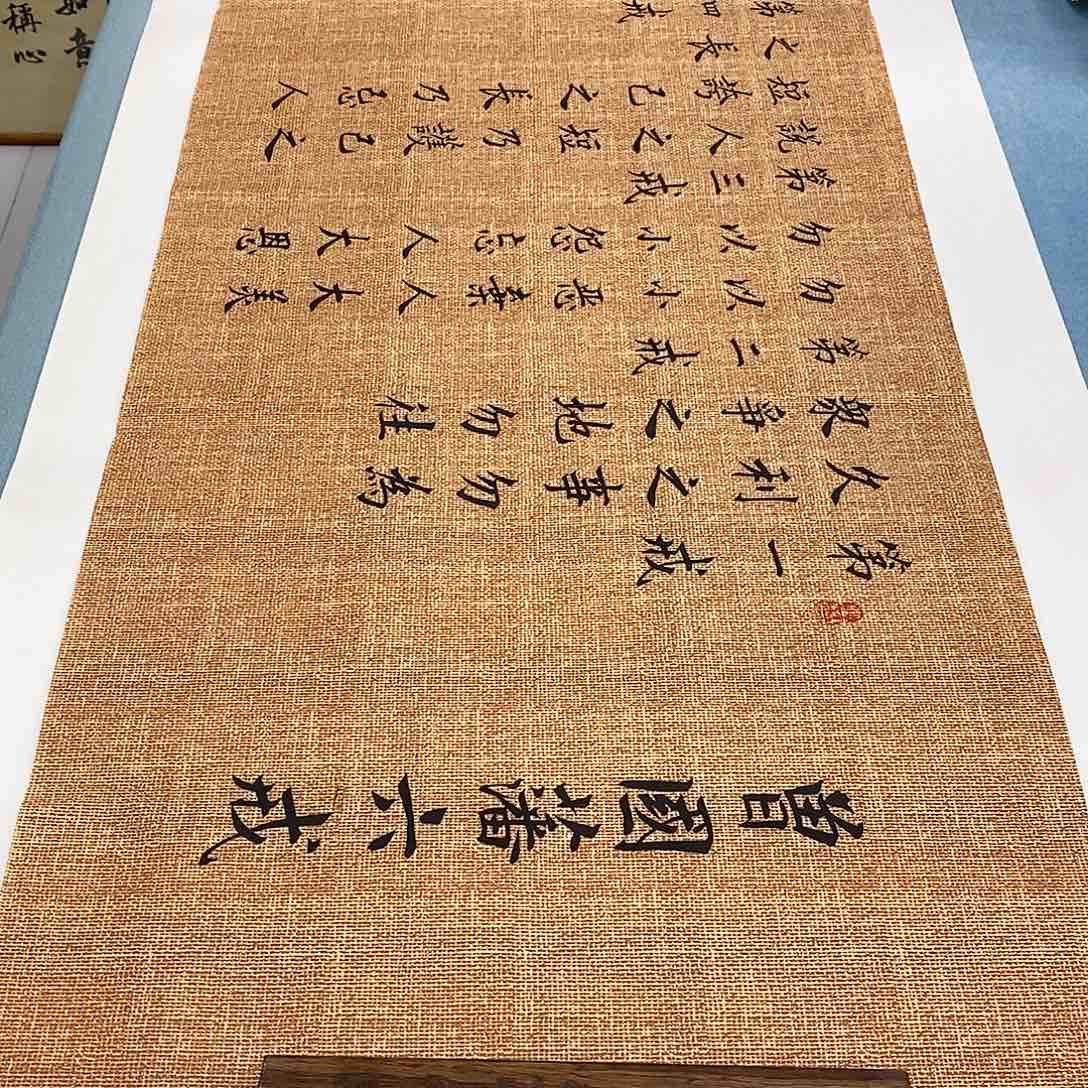 曾國藩六戒
第一戒
久利之事勿為
眾爭之地勿往
第二戒
勿以小惡棄人大美
勿以小怨忘人大恩
第三戒
說人之短乃護己之
短誇己之長乃忌人
之長
第四戒